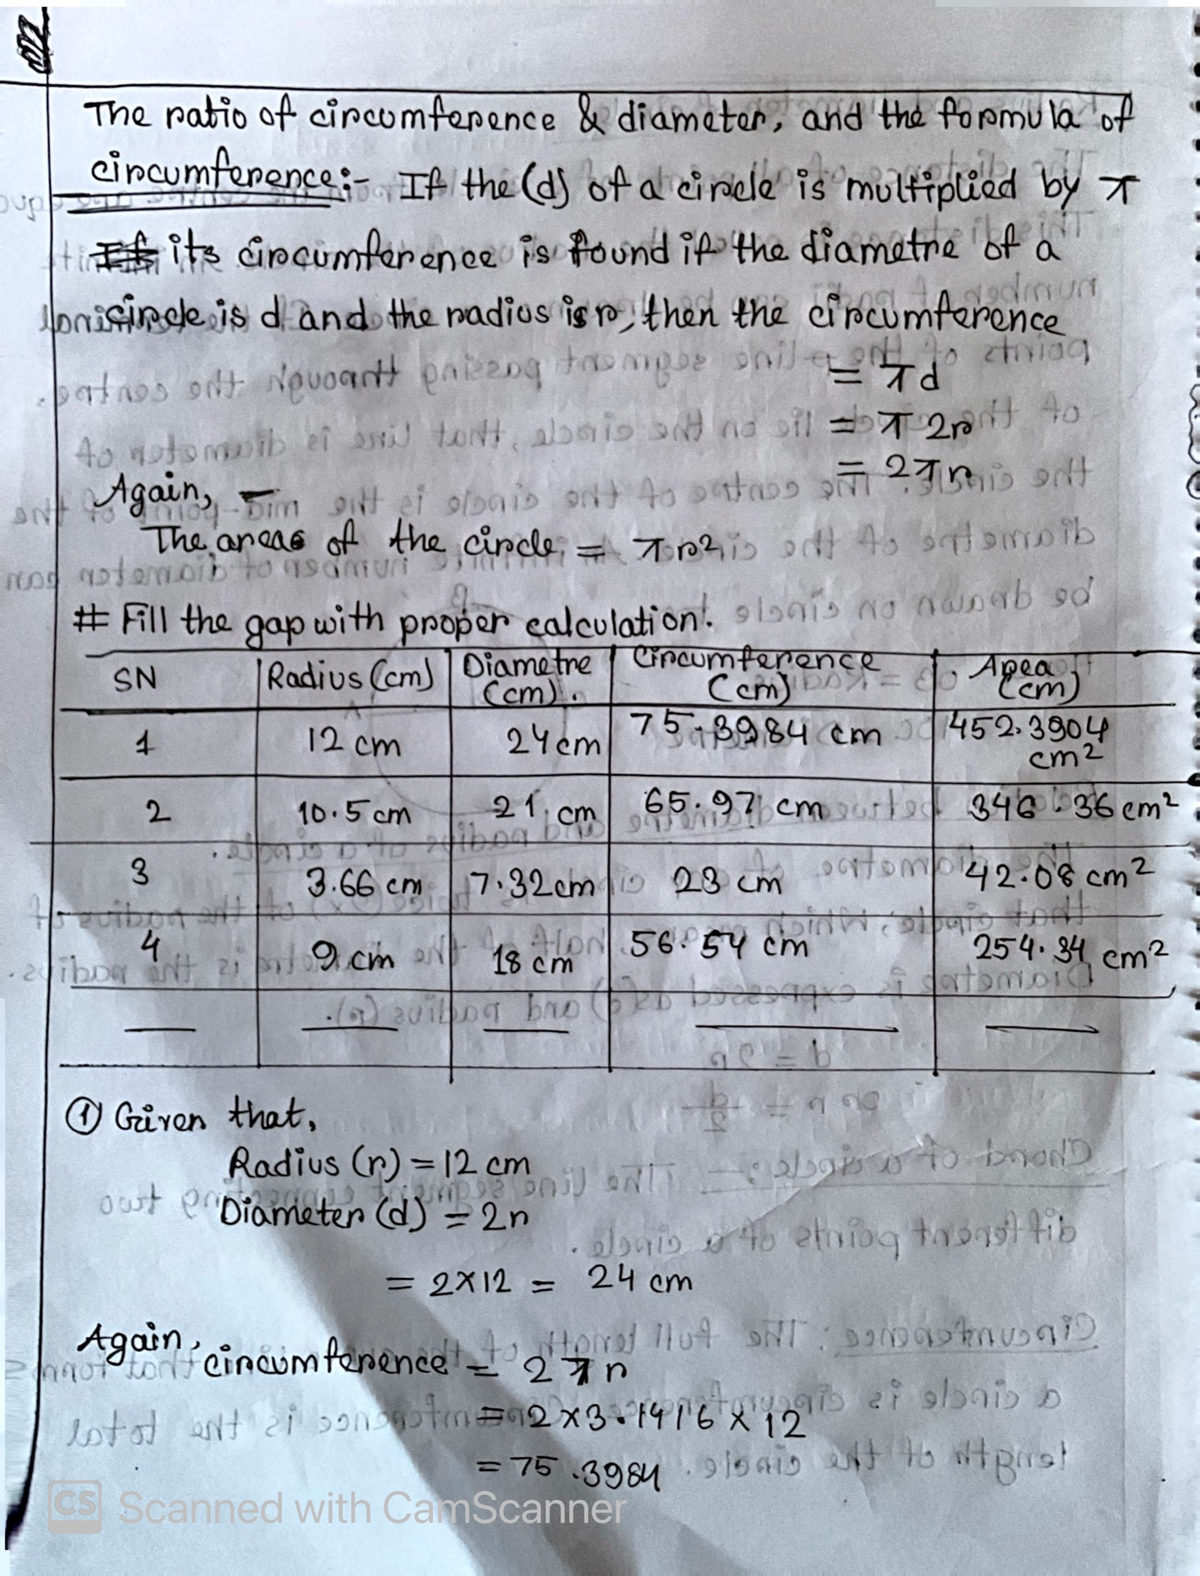 The ratio of circumference & diameter, and the formula of
circumference:- If the (d) of a circle is multiplied by π
its circumference is found if the diametre of a
circle is d and the radius is r, then the circumference
= πd
= π 2r
= 2πr
Again,
The areas of the circle = πr2
# Fill the gap with proper calculation:
SN Radius (cm) Diametre (cm). Circumference (cm) Area (cm)
1 12 cm 24 cm 75.3984 cm 452.3904 cm2
2 10.5 cm 21 cm 65.97 cm 346.36 cm2
3 3.66 cm 7.32 cm 23 cm 42.08 cm2
4 9 cm 18 cm 56.54 cm 254.34 cm2
① Given that,
Radius (r) = 12 cm
Diameter (d) = 2r
= 2×12 = 24 cm
Again, circumference = 2πr
= 2×3.1416×12
= 75.3984
CS Scanned with CamScanner